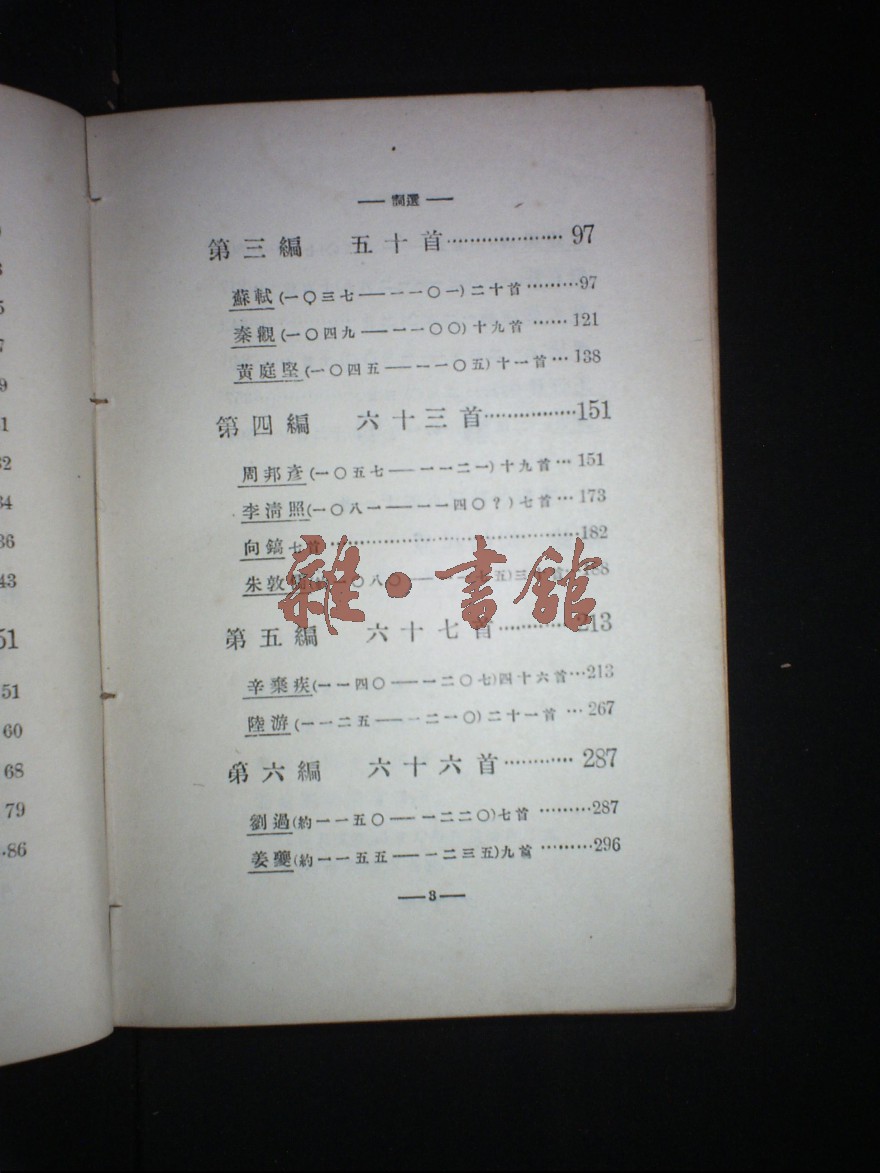 1
32
34
36
43
51
51
60
68
79
86
— 詞選 —
第三編 五十首 97
蘇軾(一〇三七——一一〇一)二十首 97
秦觀(一〇四九——一一〇〇)十九首 121
黃庭堅(一〇四五——一一〇五)十一首 138
第四編 六十三首 151
周邦彥(一〇五七——一一二一)十九首 151
李清照(一〇八一——一一四〇?)七首 173
向鎬七首 182
朱敦 一〇八〇——一一七五)三
第五編 六十七首 213
辛棄疾(一一四〇——一二〇七)四十六首 213
陸游(一一二五——一二一〇)二十一首 267
第六編 六十六首 287
劉過(約一一五〇——一二二〇)七首 287
姜夔(約一一五五——一二三五)九首 296
— 3 —
雜·書館